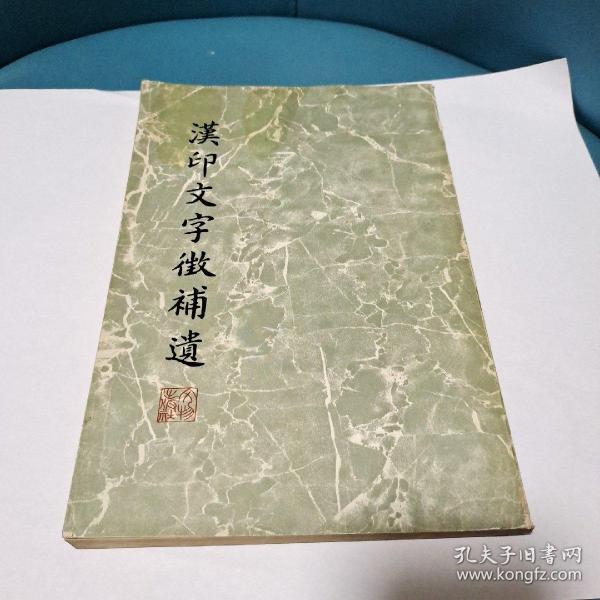 漢印文字徵補遺
孔夫子旧书网
www.kongfz.com